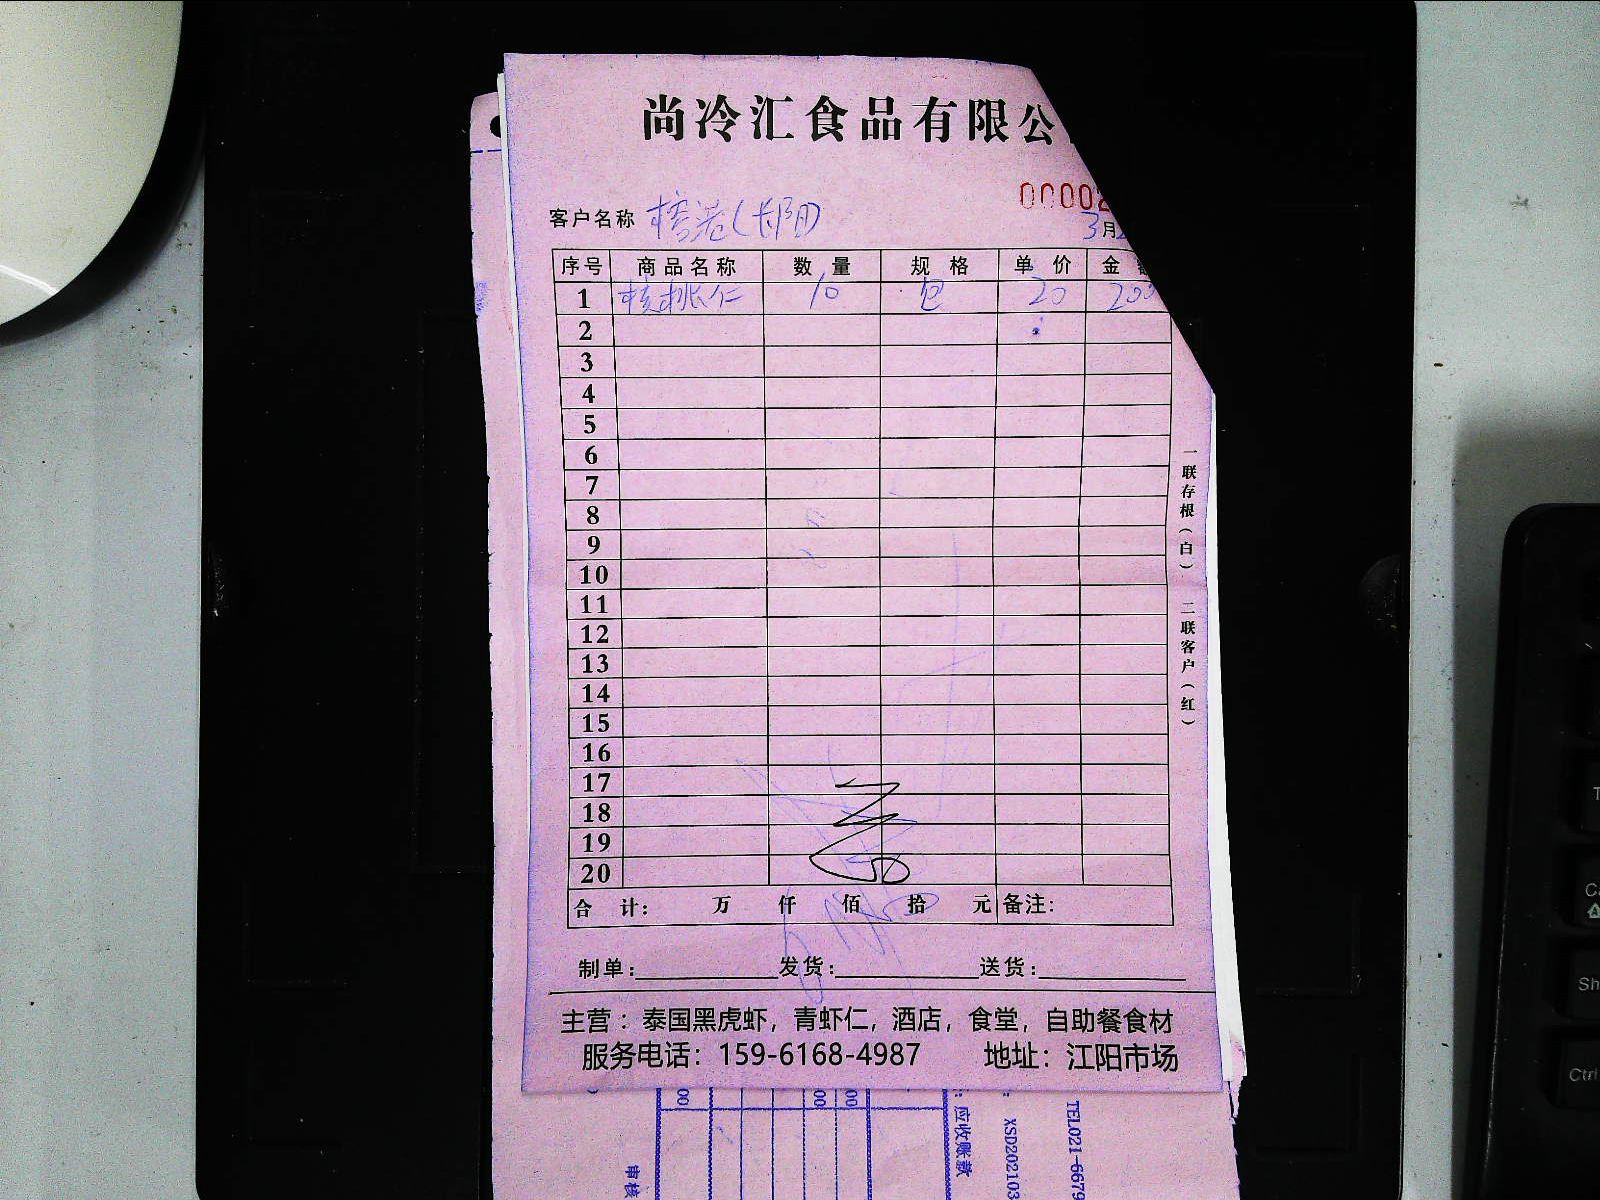 尚冷汇食品有限公
00002
客户名称 榙港(长阳) 3月
序号 商品名称 数量 规格 单价 金
1 核桃仁 10 包 20 200
2
3
4
5
6
7
8
9
10
11
12
13
14
15
16
17
18
19
20
合计: 万 仟 佰 拾 元 备注:
制单: 发货: 送货:
主营：泰国黑虎虾，青虾仁，酒店，食堂，自助餐食材
服务电话：159-6168-4987 地址：江阳市场
一联存根(白) 二联客户(红)
00 00 00
应收账款
XSD202103
TEL021-6679
审核